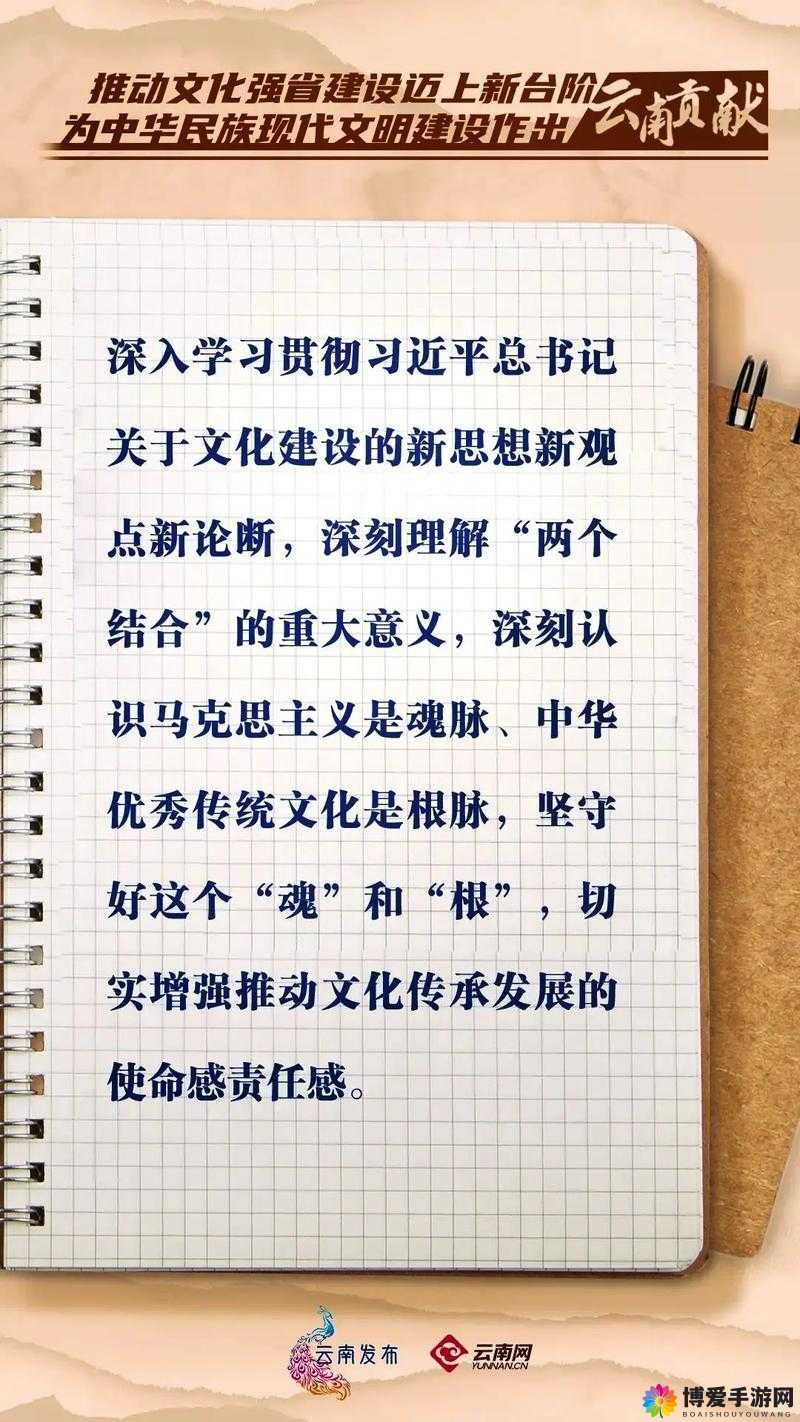 推动文化强省建设迈上新台阶
为中华民族现代文明建设作出云南贡献
深入学习贯彻习近平总书记
关于文化建设的新思想新观
点新论断，深刻理解“两个
结合”的重大意义，深刻认
识马克思主义是魂脉、中华
优秀传统文化是根脉，坚守
好这个“魂”和“根”，切
实增强推动文化传承发展的
使命感责任感。
云南发布
云南网
YUNNAN.CN
博爱手游网
BOAISHOUYOUWANG